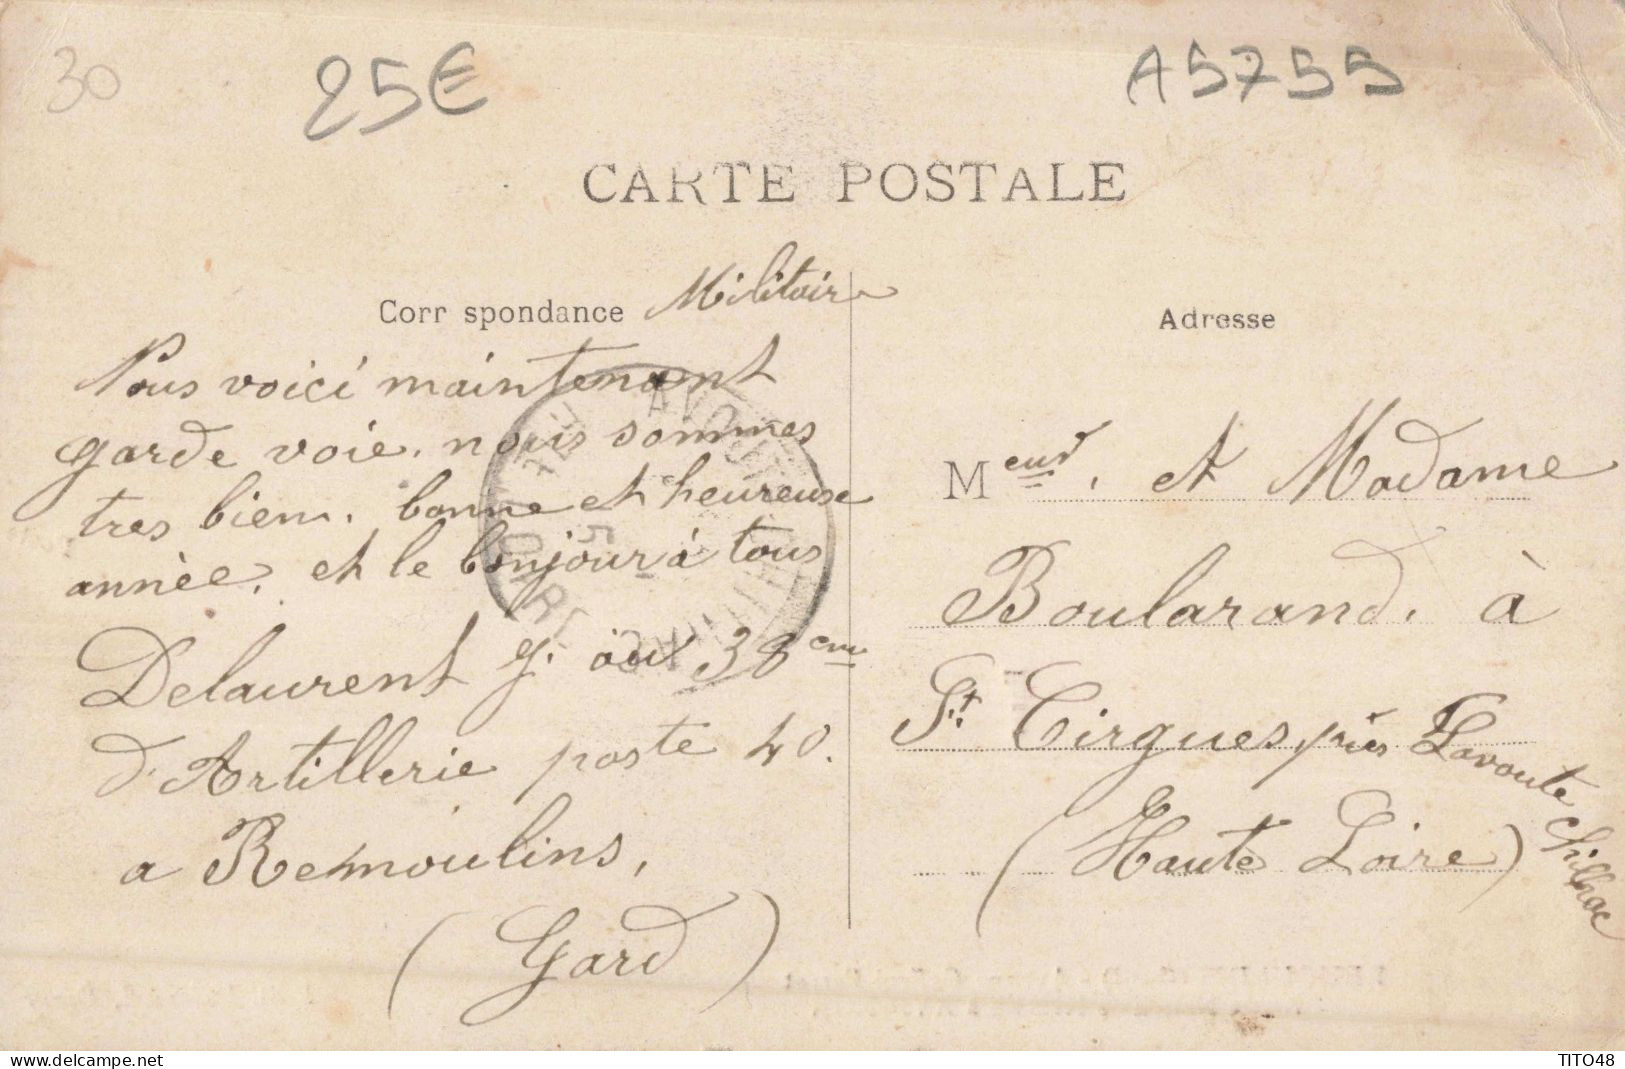 30
25€
A5755
CARTE POSTALE
Corr spondance
Militaire
Nous voici maintenant
garde voie. nous sommes
tres bien. bonne et heureuse
annèe. et le bonjour à tous
Delaurent g. au 38eme
d'Artillerie poste 40.
a Remoulins,
(Gard)
Adresse
Meur. et Madame
Boularand. à
St. Cirgues près Lavoute chilhac
(Haute Loire)
www.delcampe.net
TITO48